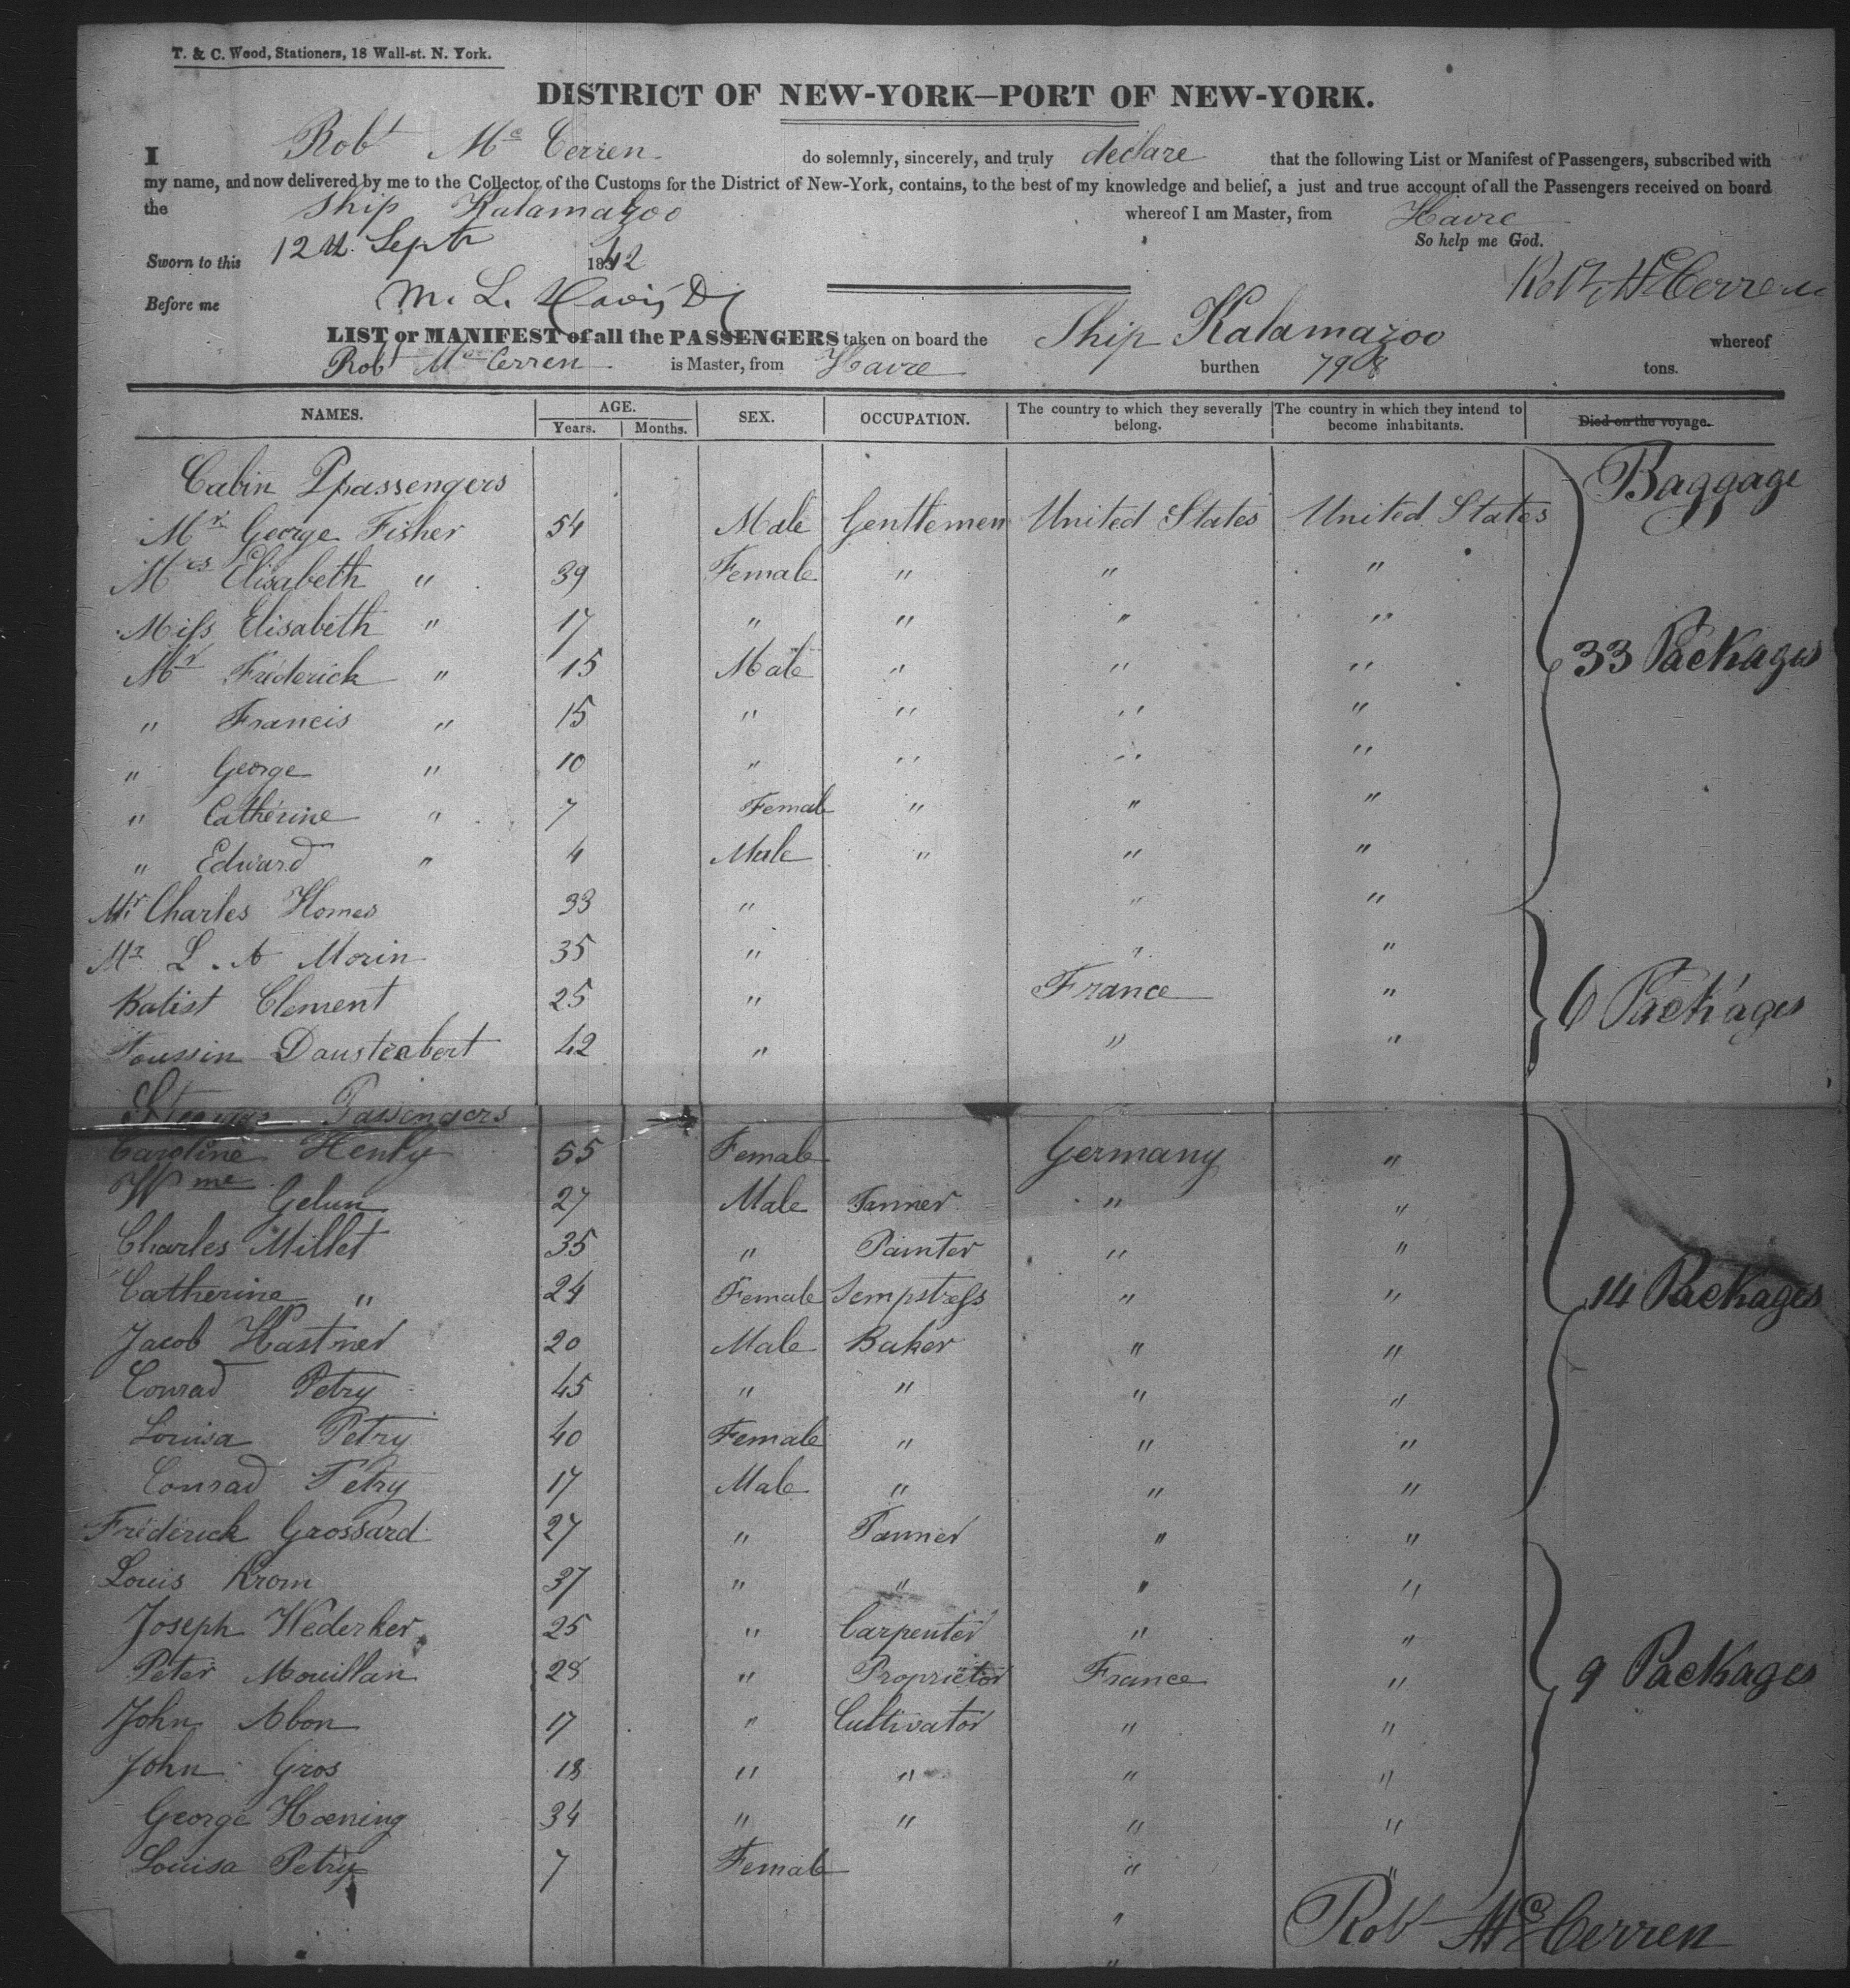 T. & C. Wood, Stationers, 18 Wall-st. N. York.
DISTRICT OF NEW-YORK—PORT OF NEW-YORK.
I Robt Mc Cerren do solemnly, sincerely, and truly declare that the following List or Manifest of Passengers, subscribed with
my name, and now delivered by me to the Collector of the Customs for the District of New-York, contains, to the best of my knowledge and belief, a just and true account of all the Passengers received on board
the Ship Kalamazoo whereof I am Master, from Havre
So help me God.
Sworn to this 12th Septr 1842
Robt McCerren
Before me M. L. Davis
LIST or MANIFEST of all the PASSENGERS taken on board the Ship Kalamazoo whereof
Robt Mc Cerren is Master, from Havre burthen 798 tons.
NAMES. AGE. Years. Months. SEX. OCCUPATION. The country to which they severally belong. The country in which they intend to become inhabitants. Died on the voyage.
Cabin Passengers Baggage
Mr George Fisher 54 Male Gentlemen United States United States
Mrs Elisabeth " 39 Female " " "
Miss Elisabeth " 17 " " " "
Mr Frederick " 15 Male " " "
33 Packages
" Francis " 15 " " " "
" George " 10 " " " "
" Catherine " 7 Female " " "
" Edward " 4 Male " " "
Mr Charles Homes 33 " " "
Mr L. A Morin 35 " " "
Batist Clement 25 " France "
6 Packages
Toussin Daustenbert 42 " " "
Steerage Passengers
Caroline Henly 55 Female Germany "
Wme Gelun 27 Male Tanner " "
Charles Millet 35 " Painter " "
Catherine " 24 Female Sempstress " "
14 Packages
Jacob Hastner 20 Male Baker " "
Conrad Petry 45 " " " "
Louisa Petry 40 Female " " "
Conrad Petry 17 Male " " "
Frederick Grossard 27 " Tanner " "
Louis Krom 37 " " " "
Joseph Wederker 25 " Carpenter " "
Peter Mouillan 28 " Proprietor France "
9 Packages
John Abon 17 " Cultivator " "
John Gros 18 " " " "
George Hœning 34 " " " "
Louisa Petry 7 Female " "
"
Robt McCerren
"